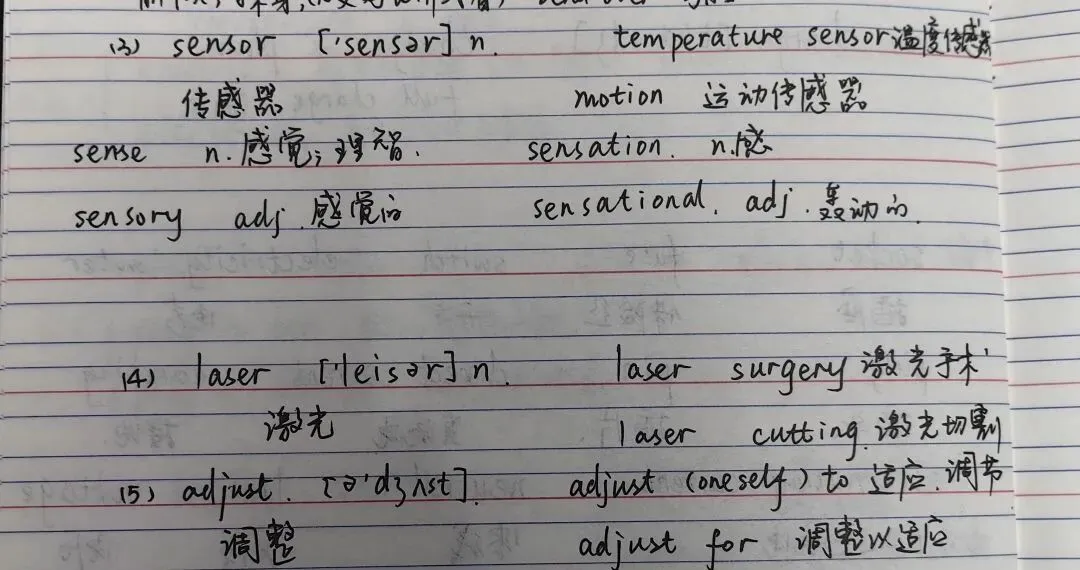 (3) sensor ['sensər] n. temperature sensor 温度传感器
传感器 motion 运动传感器
sense n. 感觉; 理智. sensation. n.感
sensory adj. 感觉的 sensational. adj. 轰动的.
(4) laser ['leisər] n. laser surgery 激光手术
激光 laser cutting. 激光切割
(5) adjust. [ə'dʒʌst]. adjust (oneself) to 适应. 调节
调整 adjust for 调整以适应